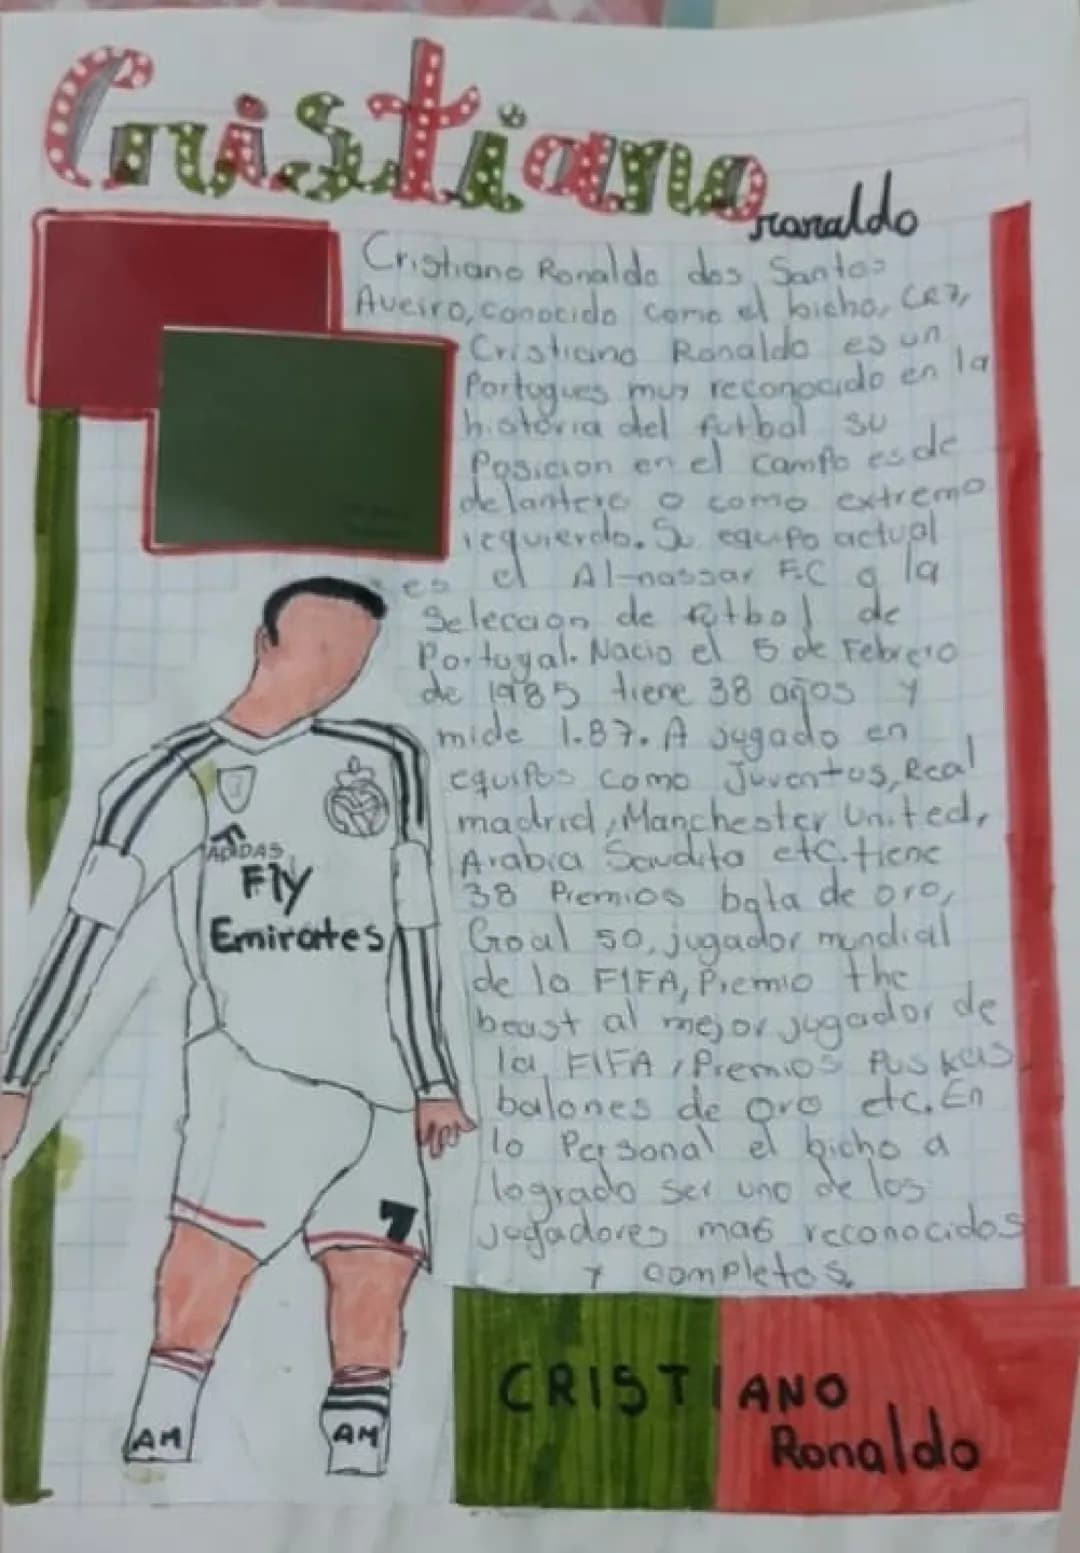 Cristiano
ronaldo
Cristiano Ronaldo dos Santos
Aveiro, conocido como el bicho, CR7,
Cristiano Ronaldo es un
Portugues muy reconocido en la
historia del futbol su
Posicion en el campo es de
delantero o como extremo
izquierdo. Su equipo actual
es el Al-nassar F.C a la
Seleccion de futbol de
Portugal. Nacio el 5 de Febrero
de 1985 tiene 38 años y
mide 1.87. A jugado en
equipos como Juventus, Real
madrid, Manchester United,
Arabia Saudita etc. tiene
38 Premios bota de oro,
Goal 50, jugador mundial
de la FIFA, Premio the
beast al mejor jugador de
la FIFA, Premios Puskas
balones de oro etc. En
lo Personal el bicho a
logrado ser uno de los
jugadores mas reconocidos
y completos.
ADIDAS
Fly
Emirates
7
AM
AM
CRISTIANO
Ronaldo